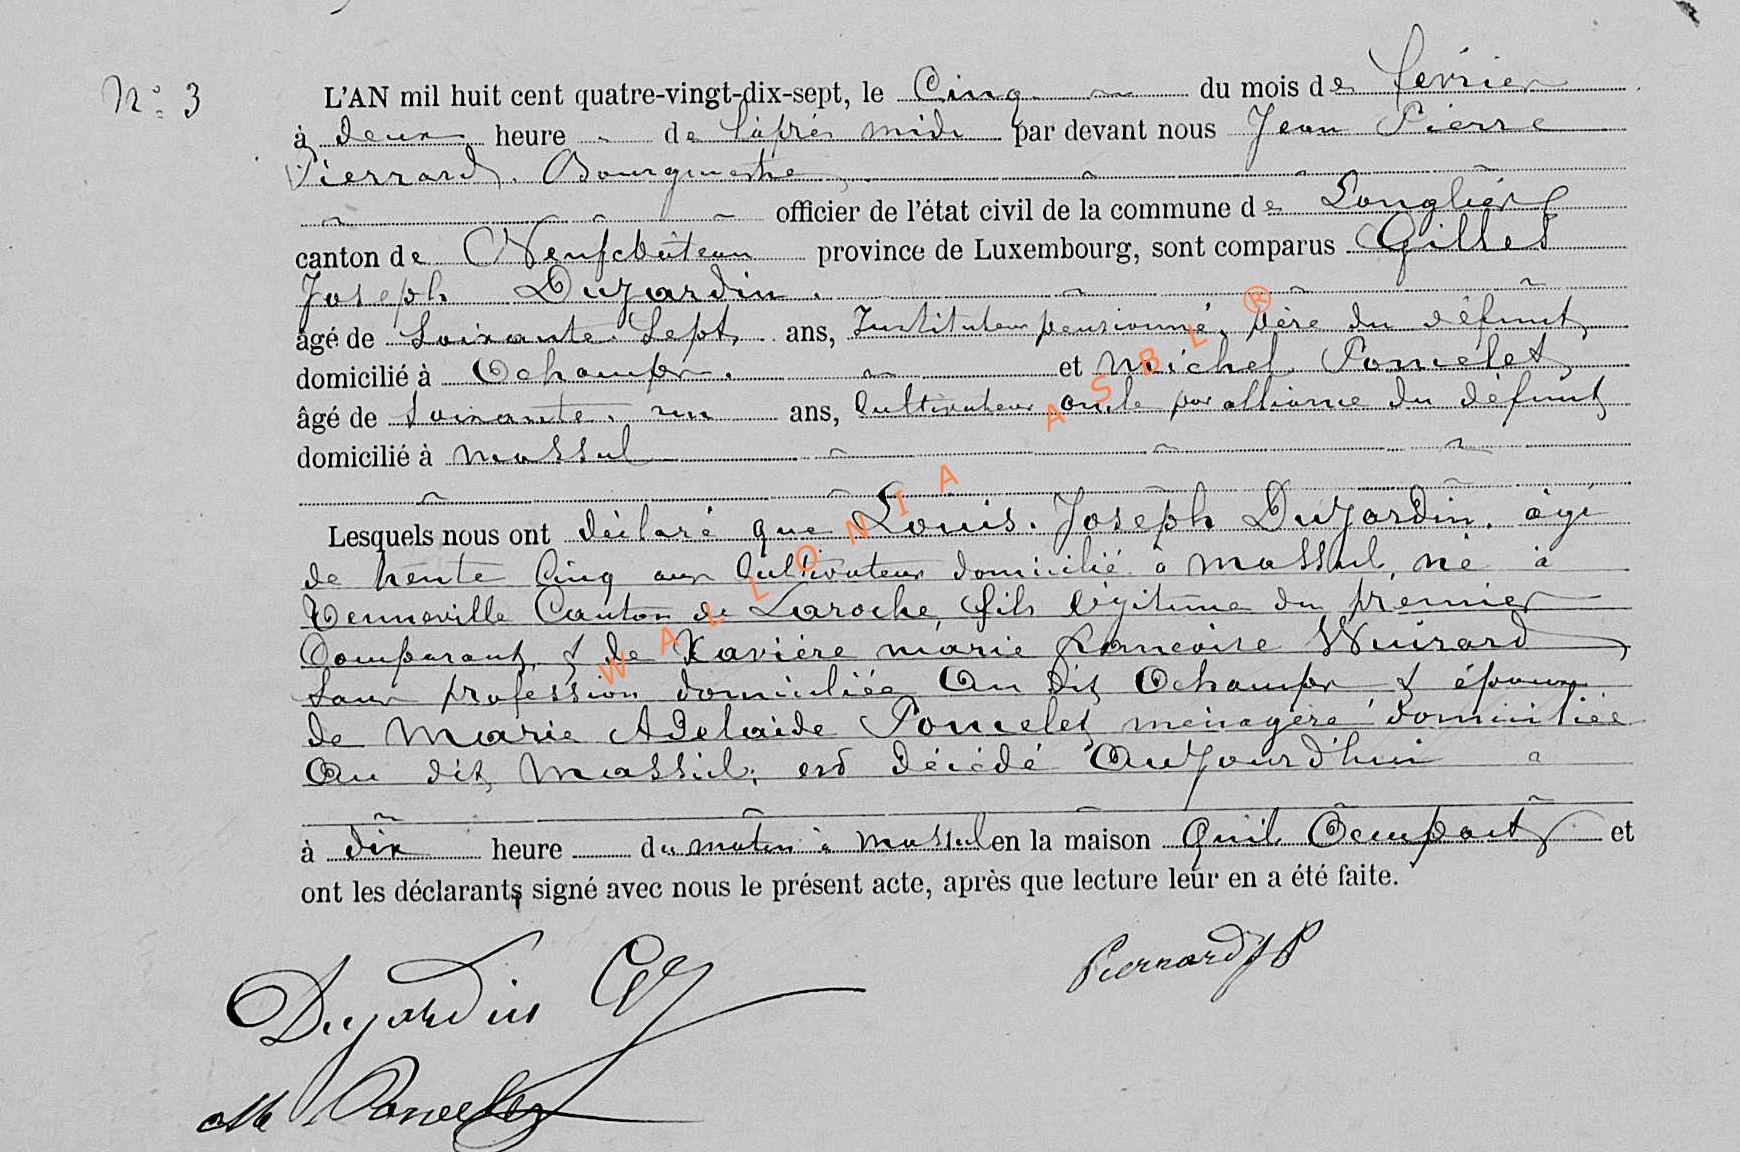 N° 3
L'AN mil huit cent quatre-vingt-dix-sept, le Cinq du mois de février
à deux heure de l'après midi par devant nous Jean Pierre
Pierrard, Bourgmestre,
officier de l'état civil de la commune de Longlier
canton de Neufchâteau province de Luxembourg, sont comparus Gilles
Joseph Dujardin.
âgé de Soixante Sept ans, Instituteur pensionné, père du défunt,
domicilié à Ochamps. et Michel Poncelet,
âgé de Soixante un ans, Cultivateur oncle par alliance du défunt
domicilié à Massul
Lesquels nous ont déclaré que Louis Joseph Dujardin, âgé
de trente Cinq ans Cultivateur domicilié à Massul, né à
Tenneville Canton de Laroche, fils légitime du premier
Comparant, & de Xavière marie francoise Wuirard
Sans profession domiciliée Au dit Ochamps & époux
de Marie Adelaide Poncelet ménagère domiciliée
Au dit Massul, est décédé Aujourd'hui
à dix heure du matin à Massul en la maison qu'il Occupait et
ont les déclarants signé avec nous le présent acte, après que lecture leur en a été faite.
Pierrard JP
Dujardin G
M Poncelet
WALLONIA ASBL ®